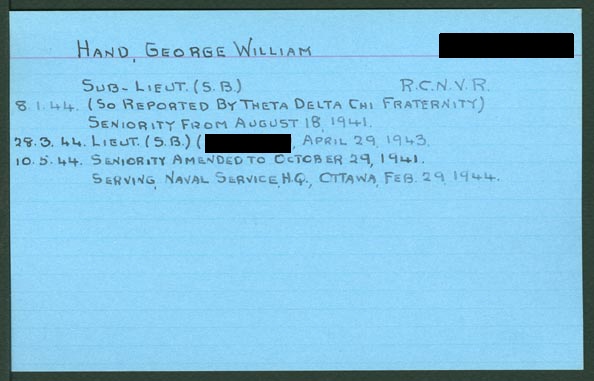 HAND, GEORGE WILLIAM
SUB-LIEUT. (S.B.) R.C.N.V.R.
8.1.44. (SO REPORTED BY THETA DELTA CHI FRATERNITY)
SENIORITY FROM AUGUST 18, 1941.
28.3.44. LIEUT. (S.B.) ( , APRIL 29, 1943.
10.5.44. SENIORITY AMENDED TO OCTOBER 29, 1941.
SERVING, NAVAL SERVICE, H.Q., OTTAWA, FEB. 29, 1944.